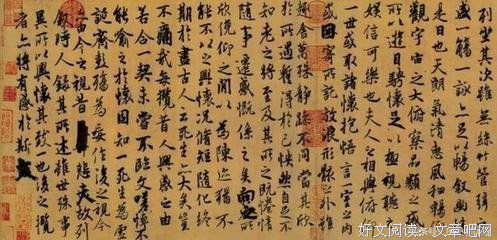 列坐其次雖無絲竹管弦之
盛一觴一詠亦足以暢敘幽情
是日也天朗氣清惠風和暢仰
觀宇宙之大俯察品類之盛
所以遊目騁懷足以極視聽之
娛信可樂也夫人之相與俯仰
一世或取諸懷抱悟言一室之內
或因寄所託放浪形骸之外雖
趣舍萬殊靜躁不同當其欣
於所遇暫得於己快然自足不
知老之將至及其所之既惓情
隨事遷感慨係之矣向之所
欣俛仰之閒以為陳迹猶不
能不以之興懷況脩短隨化終
期於盡古人云死生亦大矣豈
不痛哉每攬昔人興感之由
若合一契未嘗不臨文嗟悼不
能喻之於懷固知一死生為虛
誕齊彭殤為妄作後之視今
亦由今之視昔悲夫故列
敘時人錄其所述雖世殊事
異所以興懷其致一也後之攬
者亦將有感於斯文
好文阅读-文章吧网